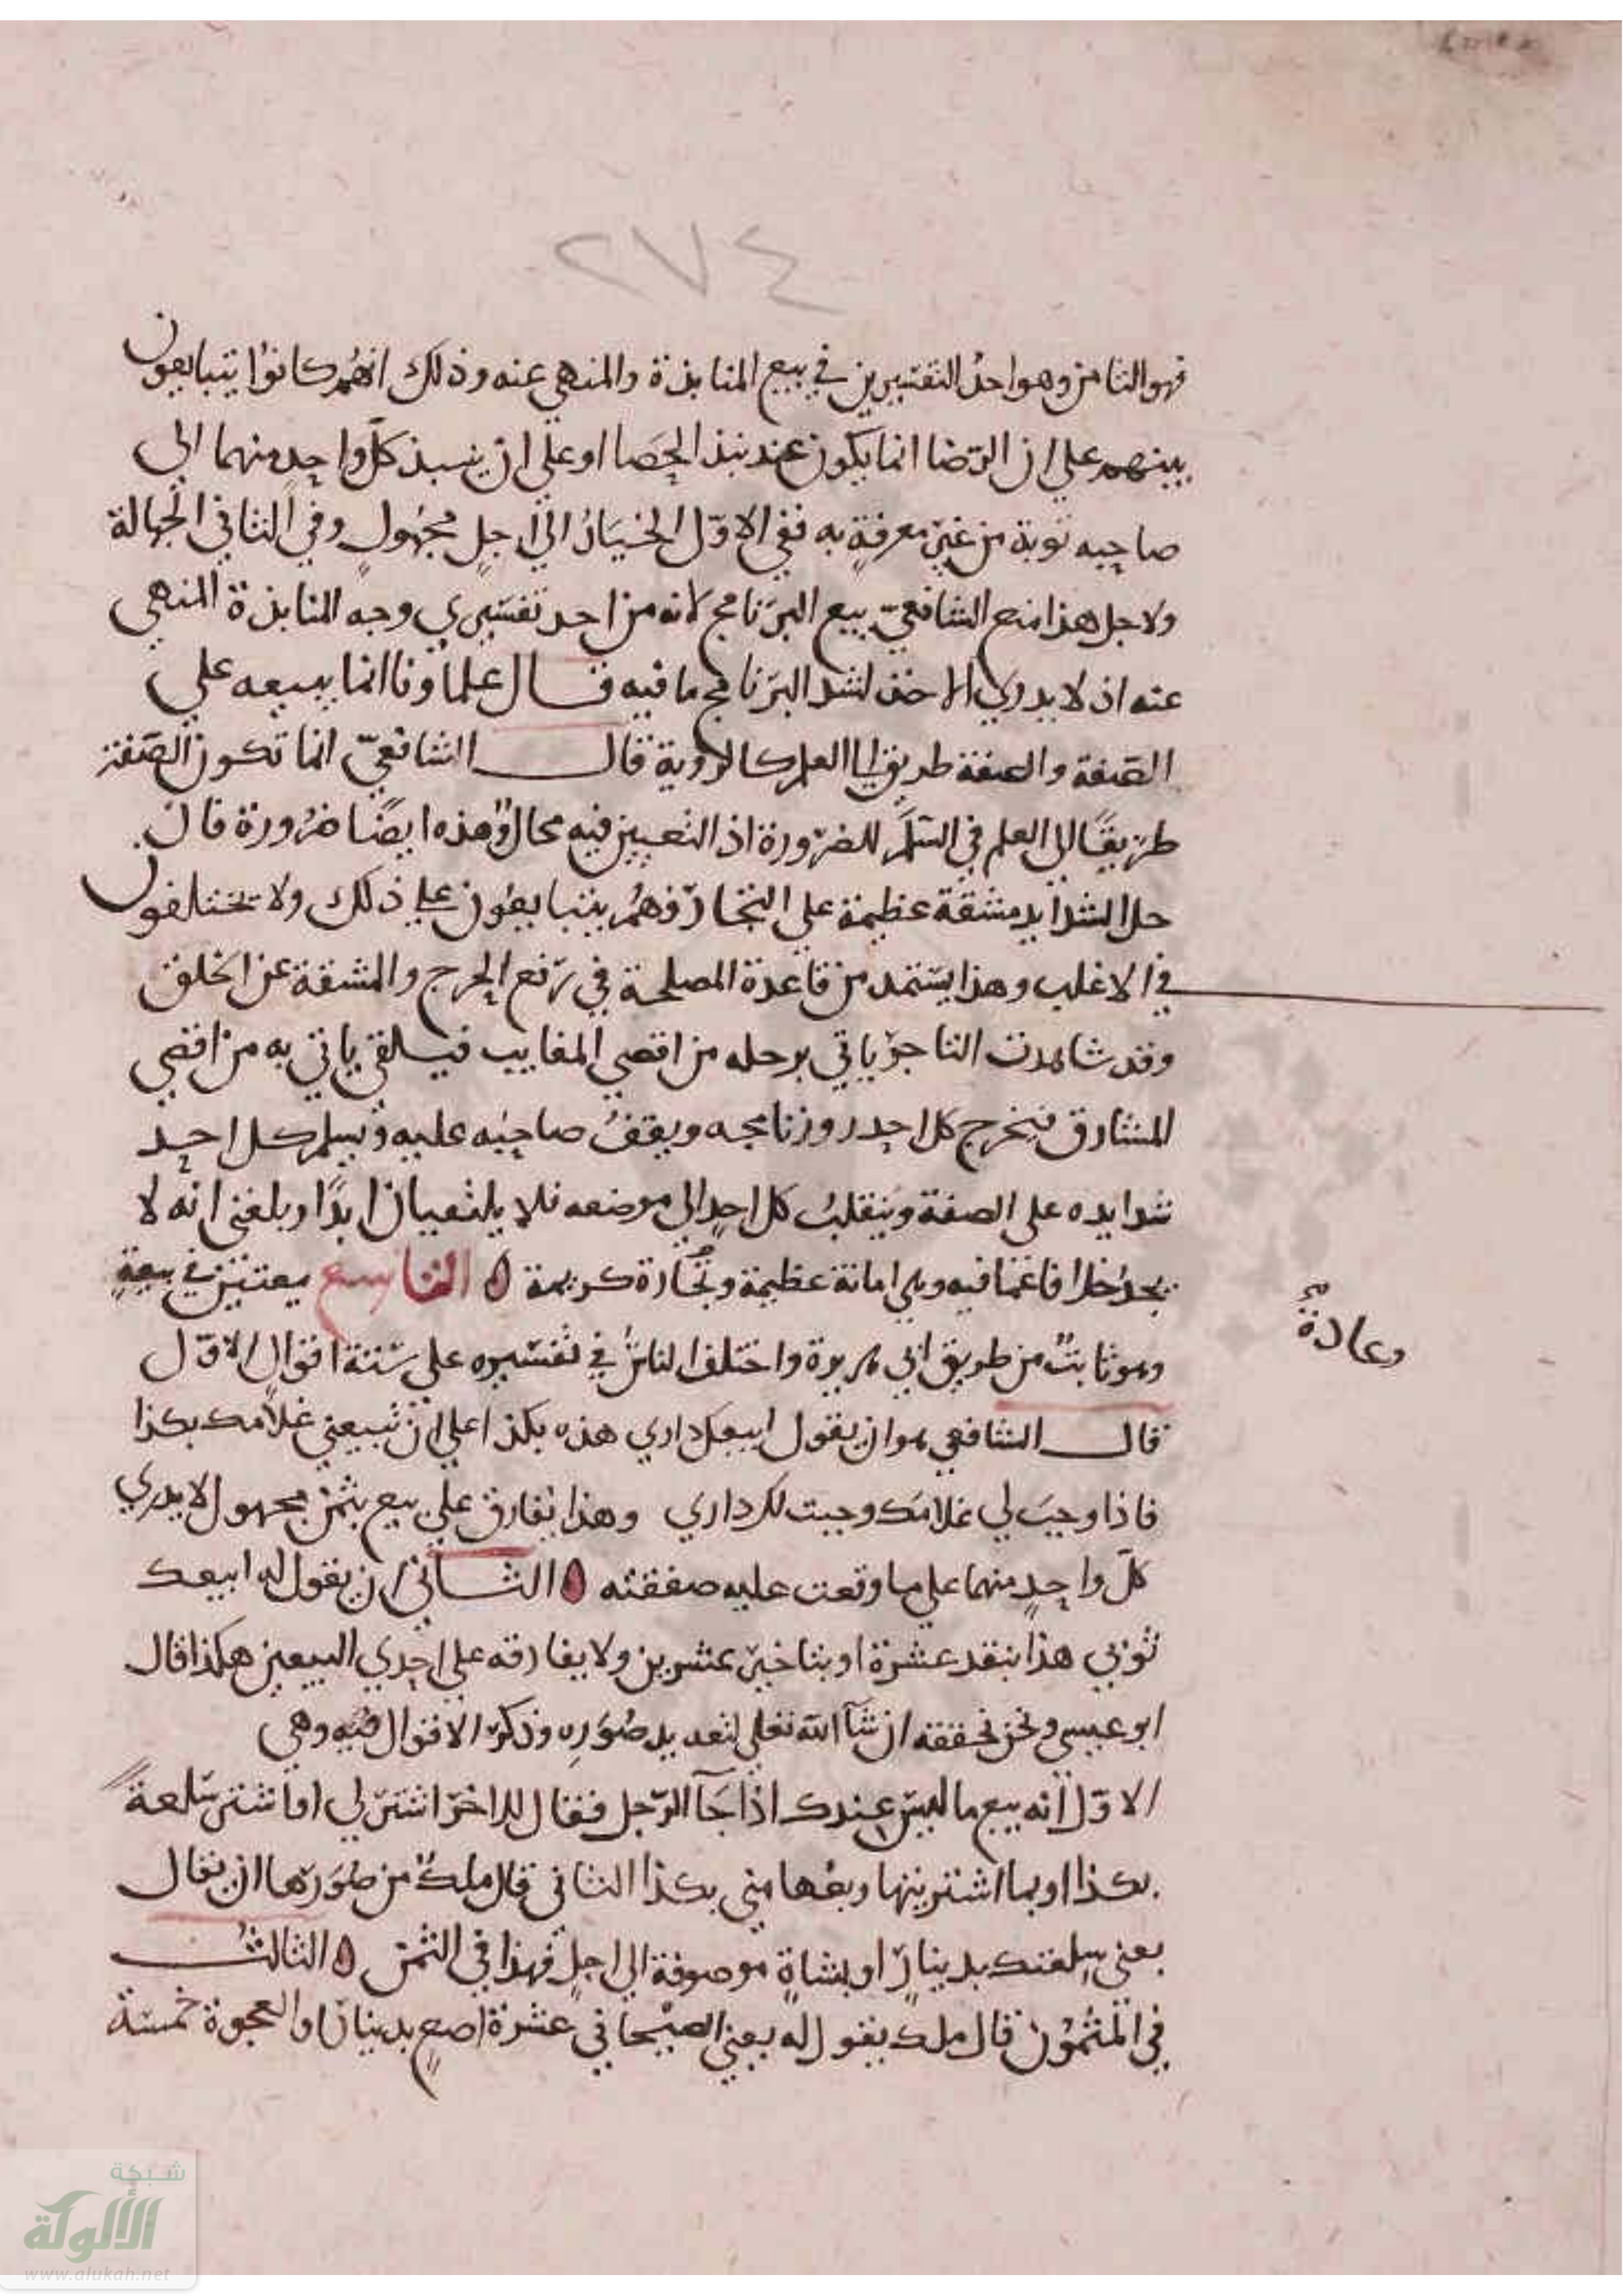 ٢٧٤
فهو الثامن وهو احدُ التفسيرين في بيع المنابذة والمنهي عنه وذلك انهُم كانوُا يتبايعون
بينهم علي ان الرّضا انما يكون عند نبذ الحَصا او علي ان ينبذ كلّ واحدٍ منهما الي
صاحبه ثوبه من غير معرفةٍ به ففي الاوّل الخيَارُ الي اجلٍ مجهُولٍ وفي الثاني الجهالة
ولاجل هذا منع الشافعيّ بيع البرَنامج لانه من احد تفسَيري وجه المنابذة المنهي
عنه اذ لا يدري الاخذ لشد البرَنامج ما فيه قال علماونا انما يبيعه علي
الصّفة والصفة طريق الي العلم كالروية قال الشافعيّ انما تكون الصّفة
طريقًا الي العلم في السّلَم للضرّورة اذ التعيين فيه محالٌ وُهذه ايضًا ضرُورة فان
حل الشدايد مشقة عظيمة علي التجّار فهُم يتبايعُون علي ذلك ولا يختلفون
في الاغلب وهذا يسَتمد من قاعدة المصلحة في رَفع الحرج والمشقة عن الخلق
وقد شاهدت التاجرَ ياتي برحله من اقصي المغارب فيلقي ياتي به من اقصي
المشارق فيخرج كل احد روزنامجه ويقفُ صاحبُه عليه ويُسلم كل احد
شدايده على الصفة ويَنقلبُ كل احدٍ الي موضعه فلا يلتقيان ابدًا وبلغني انه لا
يجدُ خلافا عما فيه وهي امانة عظيمة وتجُارة كريمة ٥ التاسع بيعتين في بيعةٍ
وعادةٌ صح
وهو ثابتٌ من طريق ابي هريرة واختلف الناسُ في تفسَيره على سَتة اقوال الاوّل
قال الشافعي هو ان يقول ابيعك داري هذه بكذا علي ان تبيعني غلاَمك بكذا
فاذا وجبَ لي غلامَك وجبت لك داري وهذا تفارق علي بيع بثمن مجهول لا يدري
كلّ واحدٍ منهما علي ما وقعت عليه صفقته ٥ الثاني ان يقول له ابيعك
ثوبي هذا بنقد عشرة او بتاخير عشرين ولا يفارقه علي احدي البيعين هكذا قال
ابو عيسي ونحن نحققه ان شآ الله تعلي لتعديد صُوَرِه وذكر الاقوال فيُه وهي
الاوّل انه بيع ما ليسَ عندك اذا جَآ الرّجل فقال للاخرَ اشترَ لي او اشتر سَلعةً
بكذا او بما اشتريتها وبعُها مني بكذا الثاني قال ملك من صُوَرها ان يقال
بعني سِلعتك بدينارٍ او بشاةٍ موصوفة الي اجلٍ فهذا في الثمن ٥ الثالثُ
في المثمُون قال ملك يقول له بعني الصيْحاني عشرة اصعٍ بدينار او العجوة خمسَة
شبكة
الألوكة
www.alukah.net